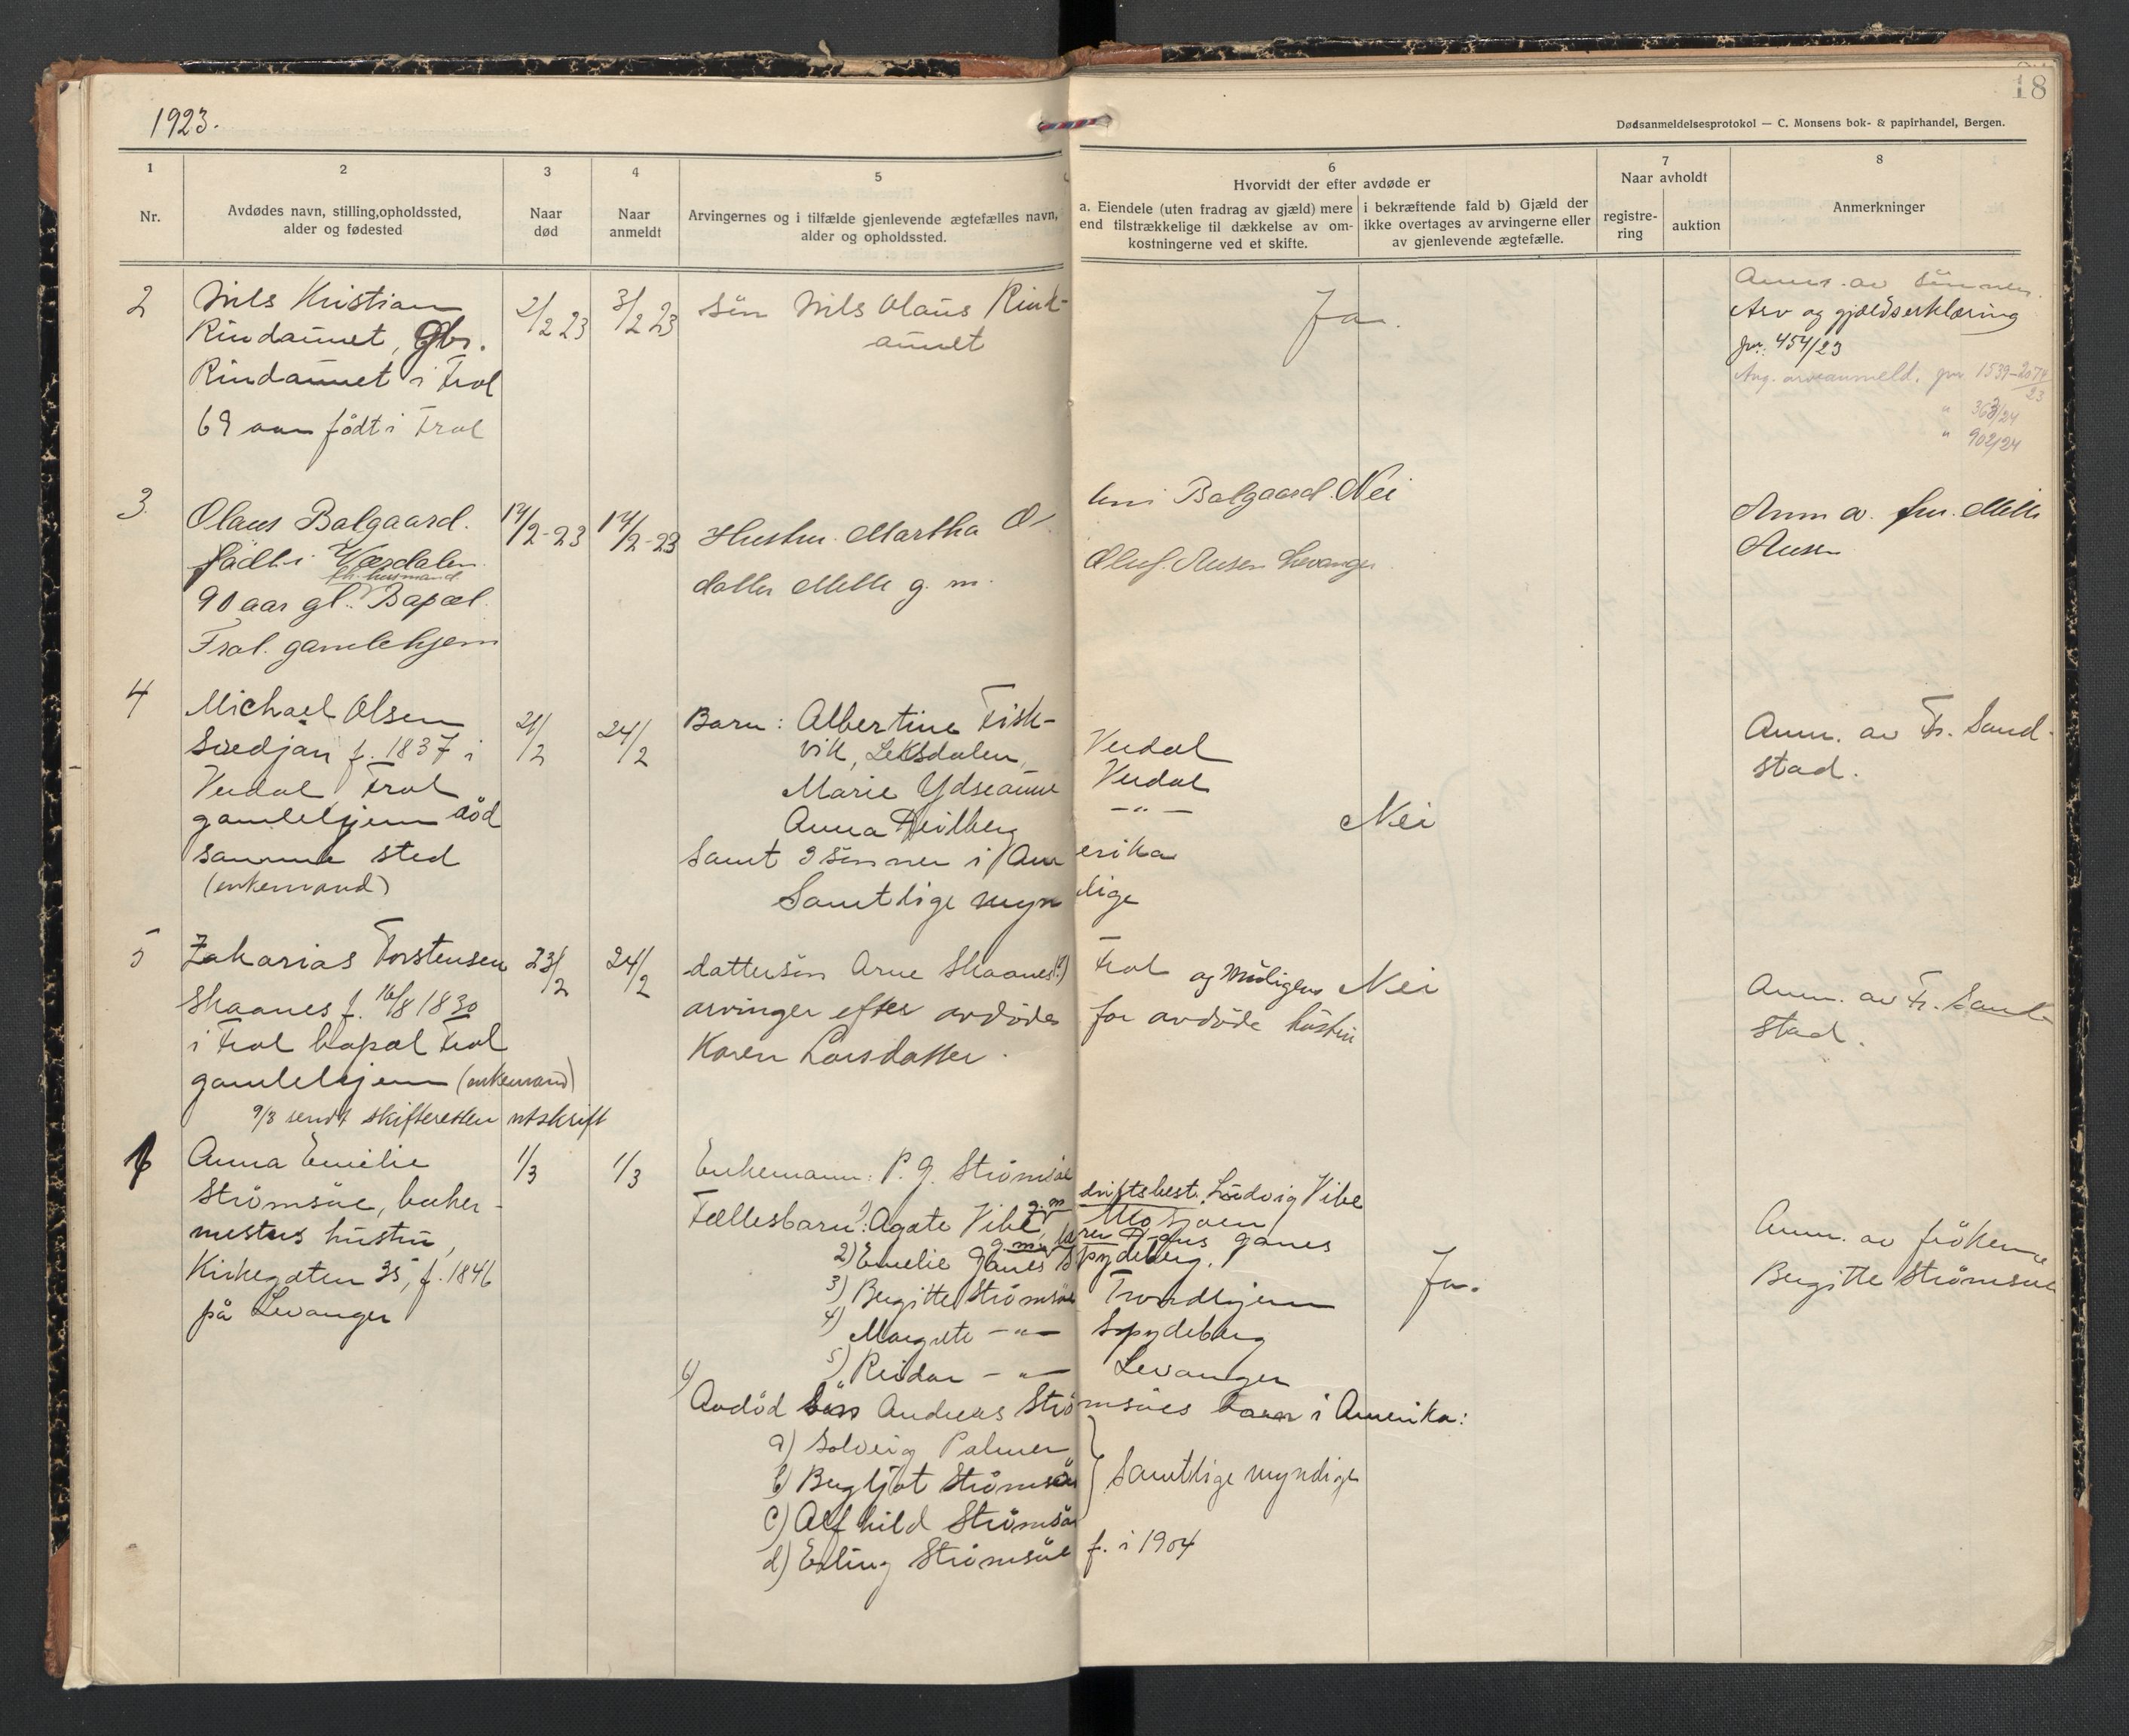 1923.
18
Dødsanmeldelsesprotokol — C. Monsens bok- & papirhandel, Bergen.
1
2
3
4
5
6
7
8
Nr.
Avdødes navn, stilling, opholdssted,
alder og fødested
Naar
død
Naar
anmeldt
Arvingernes og i tilfælde gjenlevende ægtefælles navn,
alder og opholdssted.
Hvorvidt der efter avdøde er
a. Eiendele (uten fradrag av gjæld) mere
end tilstrækkelige til dækkelse av om-
kostningerne ved et skifte.
i bekræftende fald b) Gjæld der
ikke overtages av arvingerne eller
av gjenlevende ægtefælle.
Naar avholdt
registre-
ring
auktion
Anmerkninger
2
Nils Kristian
Rindaunet, Gbr.
Rindaunet i Frol
69 aar født i Frol
2/2 23
3/2 23
Sön Nils Olaus Rind-
aunet
Ja.
Anm. av sönnen.
Arv og gjældserklæring
jnr. 454/23
Ang. arveanmeld. jnr 1539-2074/23
" 363/24
" 902/24
3
Olaus Balgaard.
født i Værdalen.
fh. husmand
90 aar gl. Bopæl
Frol. gamlehjem
14/2-23
14/2-23
Hustru Martha O
datter Melle g. m.
Balgaard. Nei
Oluf. Ausen Levanger
Anm a. fru. Melle
Ausen
4
Michael Olsen
Svedjan f. 1837 i
Verdal Frol
gamlehjem död
samme sted
(enkemand)
21/2
24/2
Barn: Albertine Fisk-
vik, Leksdalen, Verdal
Marie Ydseaune Verdal
Anna -"-
samt 2 sönner i Amerika
Samtlige myndige
Nei
Anm. av Fr. Sand-
stad.
5
Zakarias Torstensen
Skaanes f. 16/8 1830
i Frol bopæl Frol
gamlehjem (enkemand)
9/3 sendt skifteretten utskrift
23/2
24/2
dattersön Arne Skaanes(?) Frol og muligens
arvinger efter avdödes for avdöde hustru
Karen Larsdatter.
Nei
Anm. av Fr. Sand-
stad.
6
Anna Emilie
Strömsöe, baker-
mesters hustru,
Kirkegaten 35, f. 1846
på Levanger
1/3
1/3
Enkemann: P. G. Strömsöe
Fællesbarn: 1) Agate Vibe, g. m. driftsbest. Ludvig Vibe
Mosjøen
2) Emelie Ganes Spydeberg.
3) Bergitte Strömsöe Trondhjem
4) Margrete -"- Spydeberg
5) Reidar -"- Levanger
6) Avdöd sön Andreas Strömsöes barn i Amerika:
a) Solveig Palmer
b) Bergljot Strömsöe
samtlige myndige
c) Alfhild Strömsöe
d) Erling Strömsöe f. i 1904
Ja.
Anm. av fröken
Bergitte Strömsöe